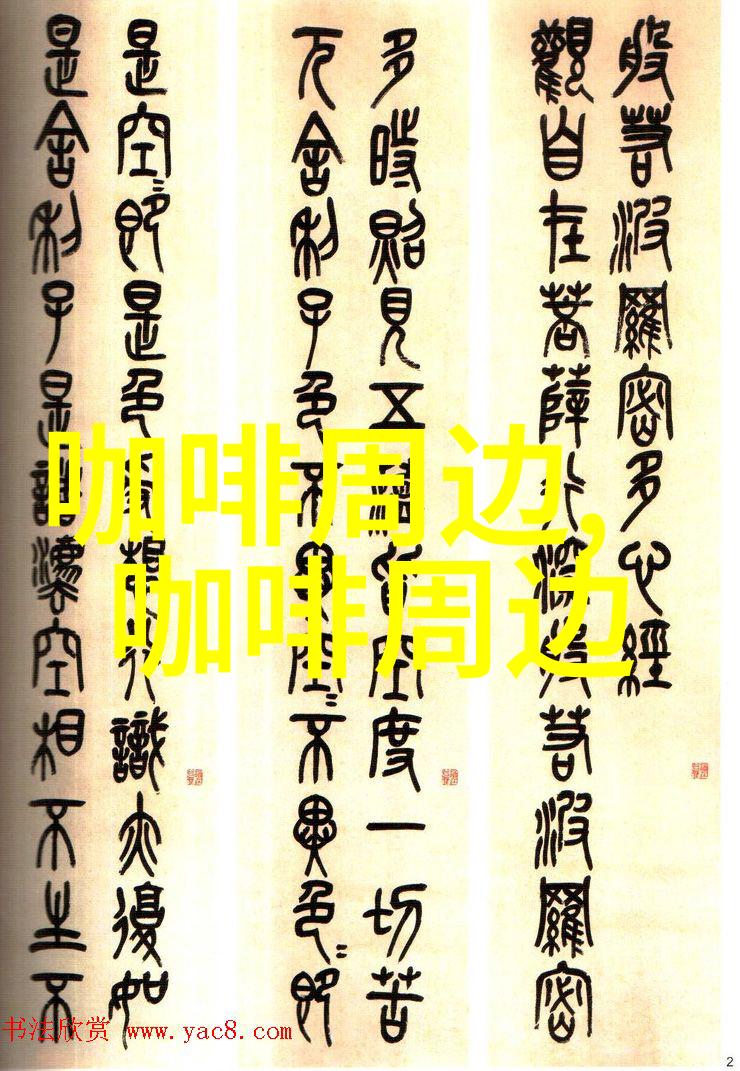 般若波羅密多心經
觀自在菩薩行深般若波羅密
多時照見五蘊皆空度一切苦
厄舍利子色不異空〃不異色〃即
是空〃即是色受想行識亦復如
是舍利子是諸法空相不生不
咖啡周边,
咖啡周边
书法欣赏 www.yac8.com
2